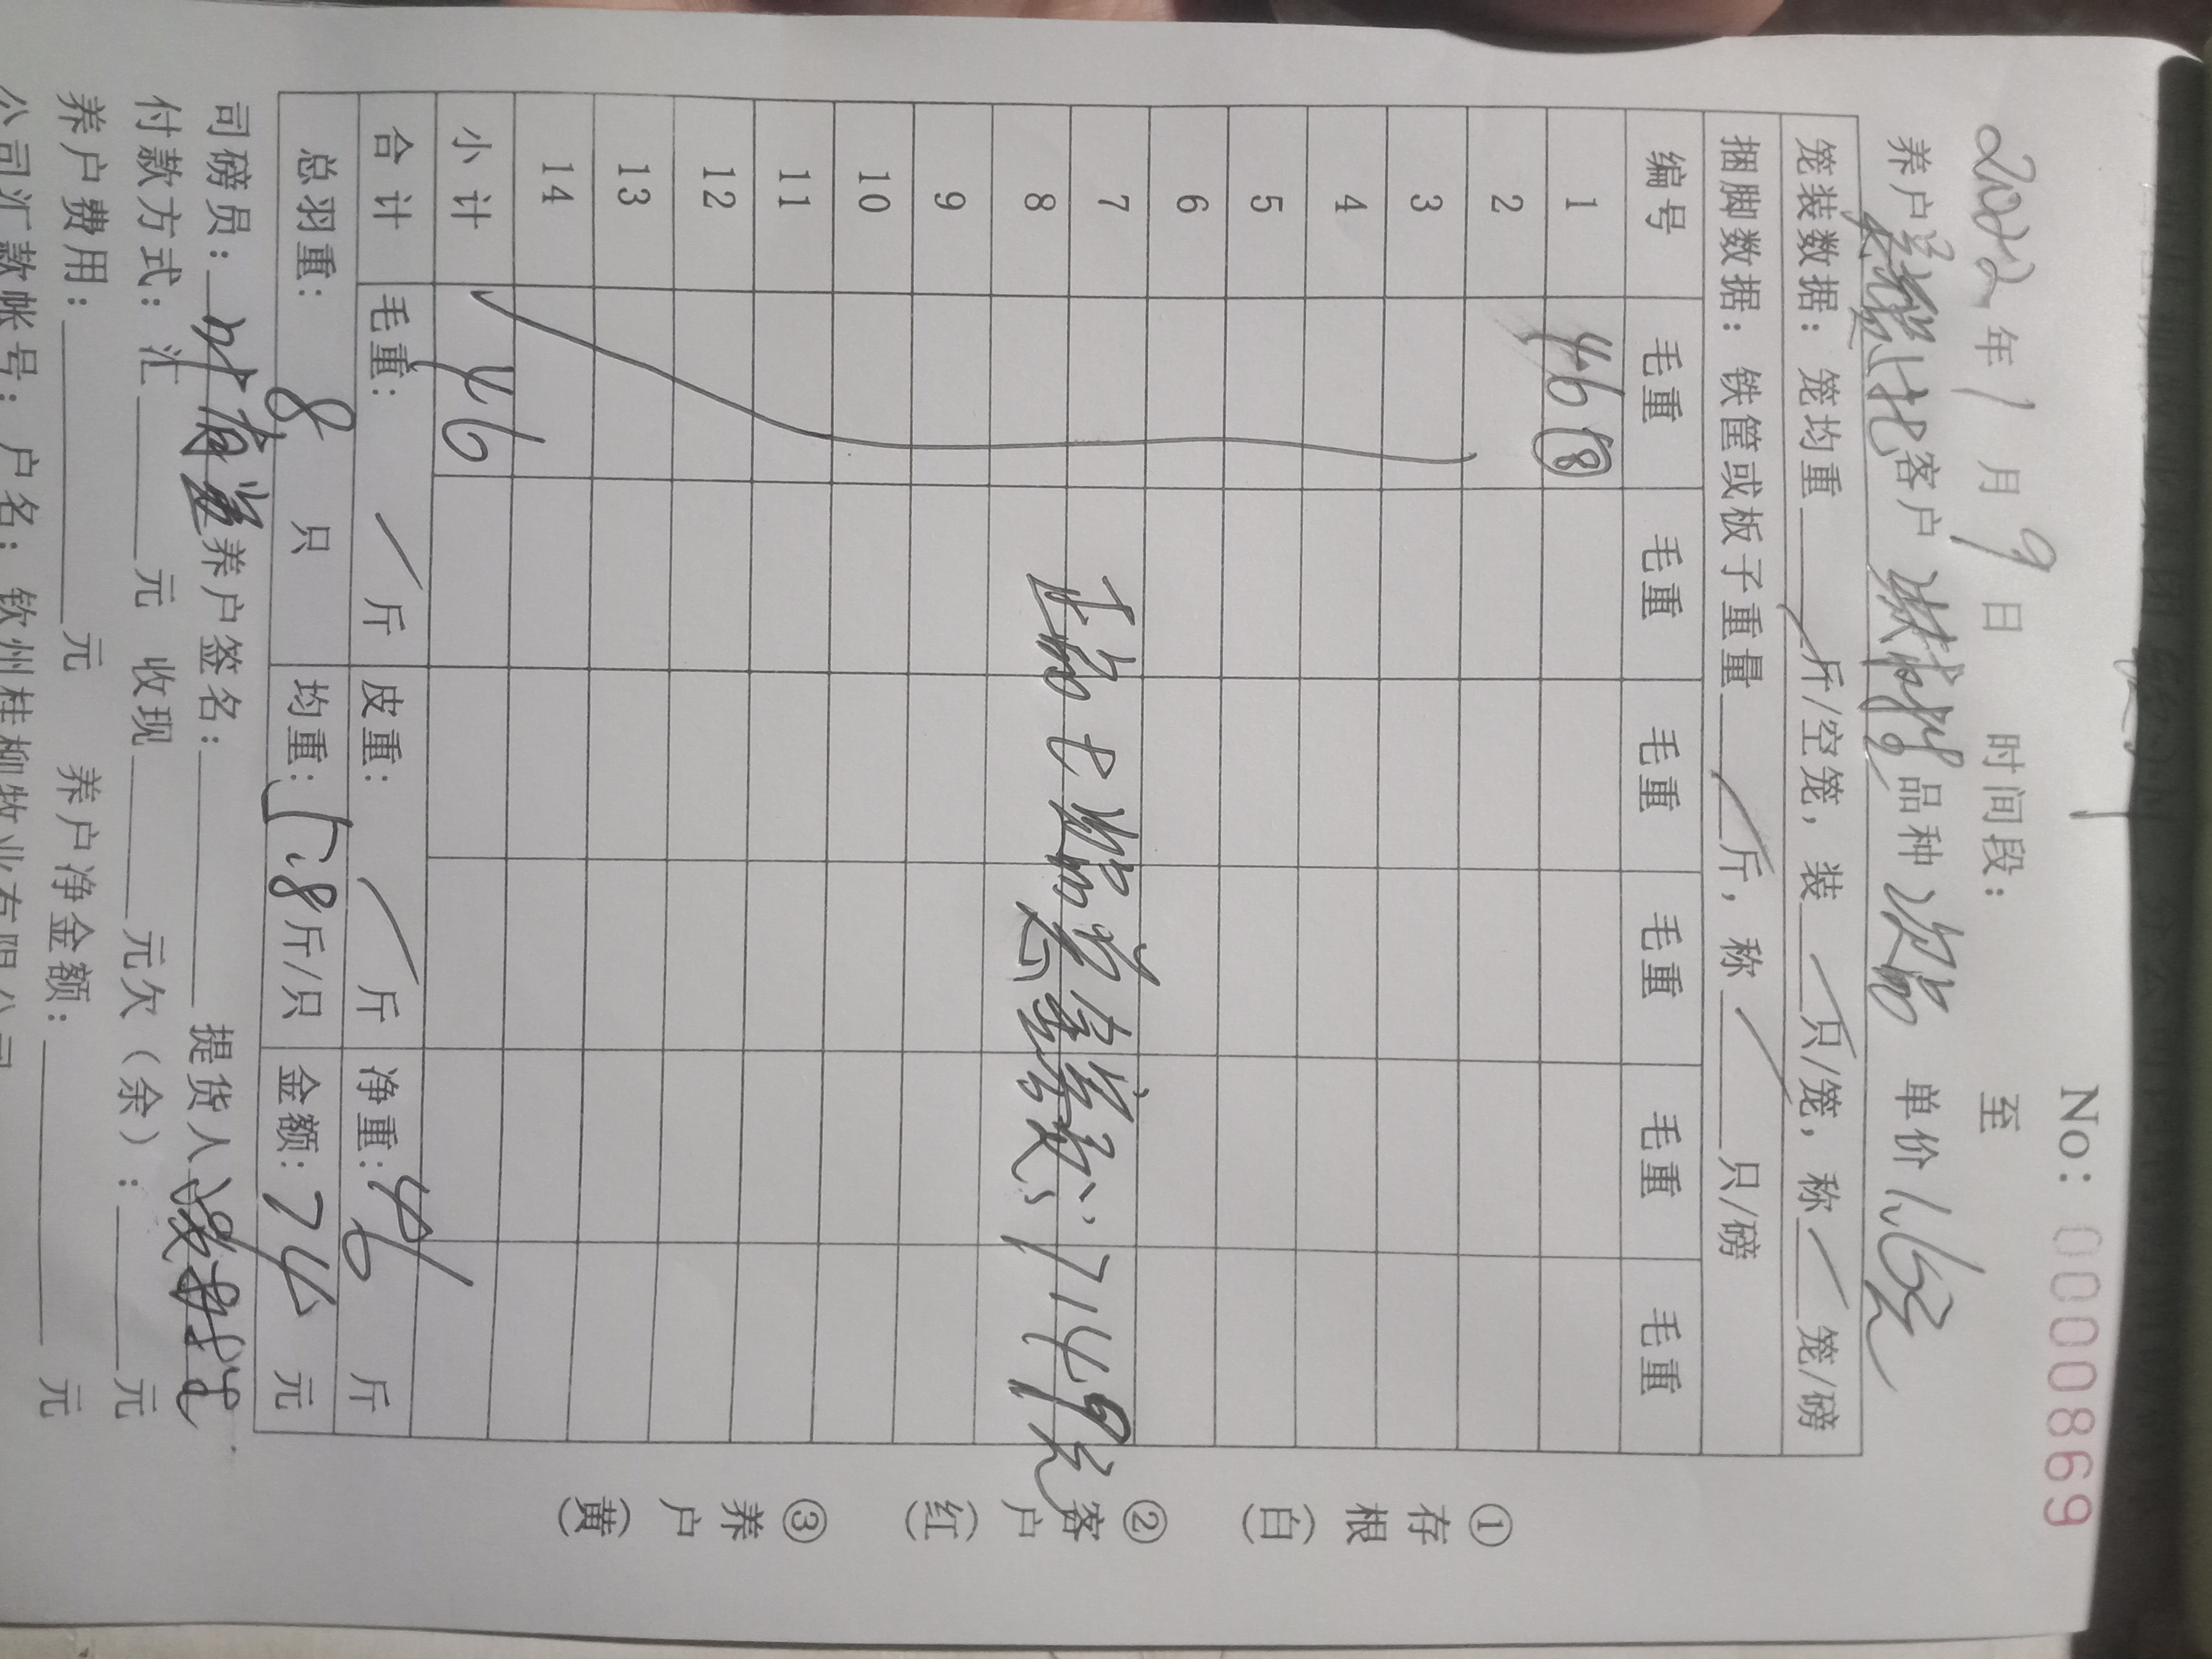 No: 0000869
2022年1月9日 时间段： 至
养户 客户 品种 次品 单价 1.6元
笼装数据：笼均重 斤/空笼，装 只/笼，称 笼/磅
捆脚数据：铁筐或板子重量 斤，称 只/磅
编号 毛重 毛重 毛重 毛重 毛重 毛重
1 46 ⑧
2
3
4
5
6
7
8
正品+次品 总金额：17149元
9
10
11
12
13
14
小计 46
合计 毛重： 斤 皮重： 斤 净重：46 斤
总羽重：8 只 均重：5.8斤/只 金额：74元
司磅员： 养户签名： 提货人
付款方式：汇 元 收现 元欠（余）： 元
养户费用： 元 养户净金额： 元
公司汇款帐号：户名：钦州桂柳牧业有限公司
①存根（白）
②客户（红）
③养户（黄）